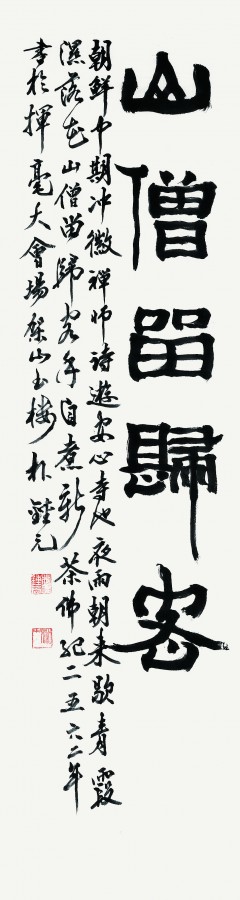 山僧留歸客
朝鮮中期冲徽禪師詩遊安心寺也夜雨朝来歇青霞
濕落花山僧留歸客手自煮新茶佛紀二五六二年
書於揮毫大會場 山 樓 朴 元